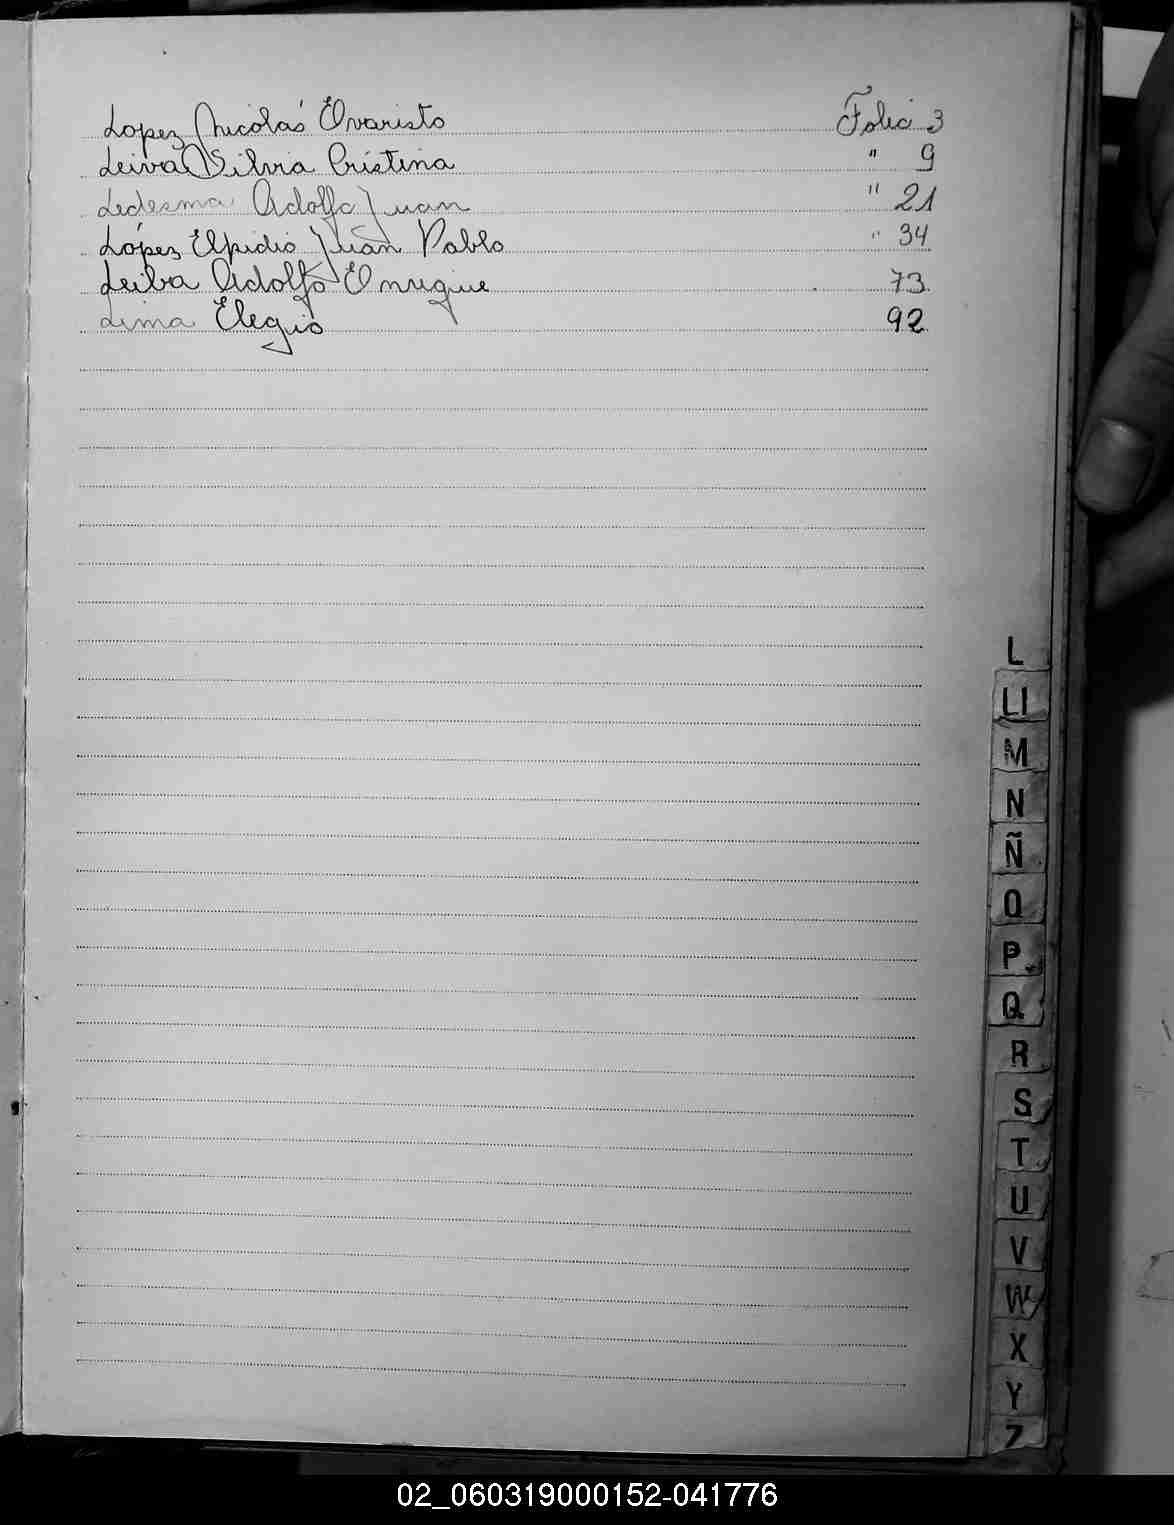 Lopez Nicolás Evaristo Folio 3
Leiva Silvia Cristina " 9
Ledesma Adolfo Juan " 21
López Elpidio Juan Pablo " 34
Leiba Adolfo Enrique 73
Lima Elegio 92
L
Ll
M
N
Ñ
O
P
Q
R
S
T
U
V
W
X
Y
Z
02_060319000152-041776